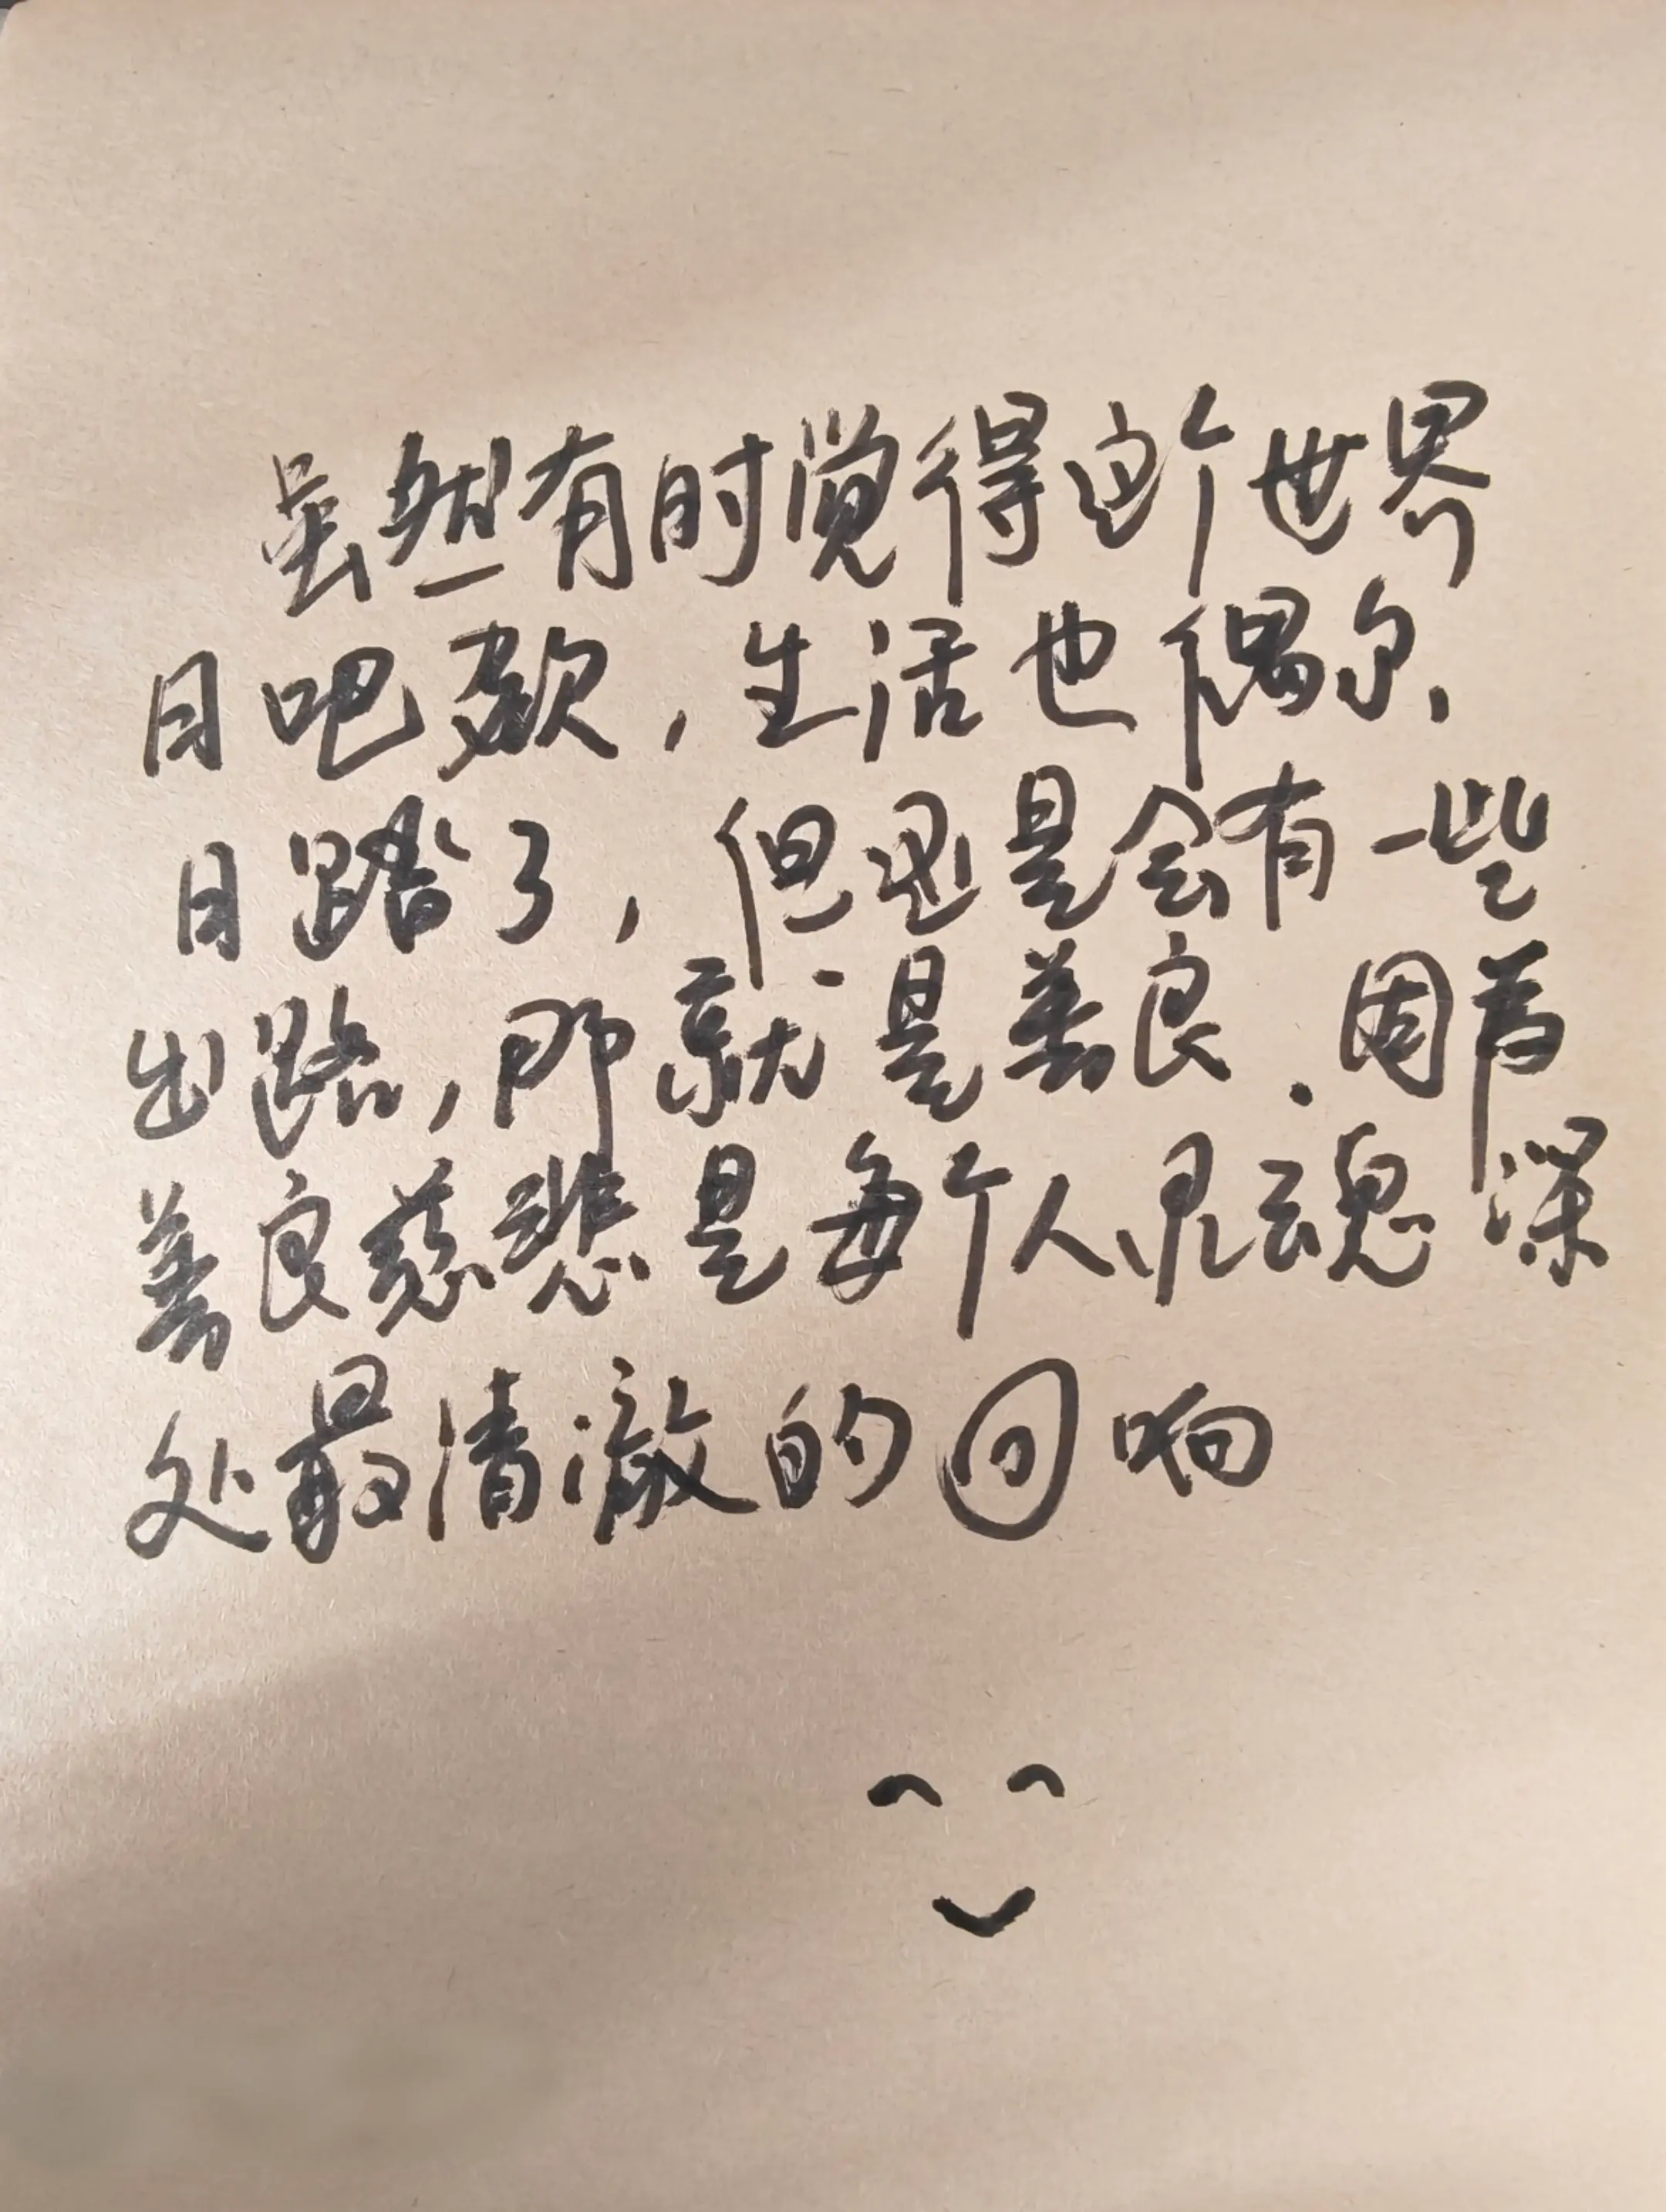 虽然有时觉得这个世界
日吧欻，生活也偶尔，
日踏了，但还是会有一些
出路，那就是善良．因为
善良慈悲是每个人灵魂深
处最清澈的回响